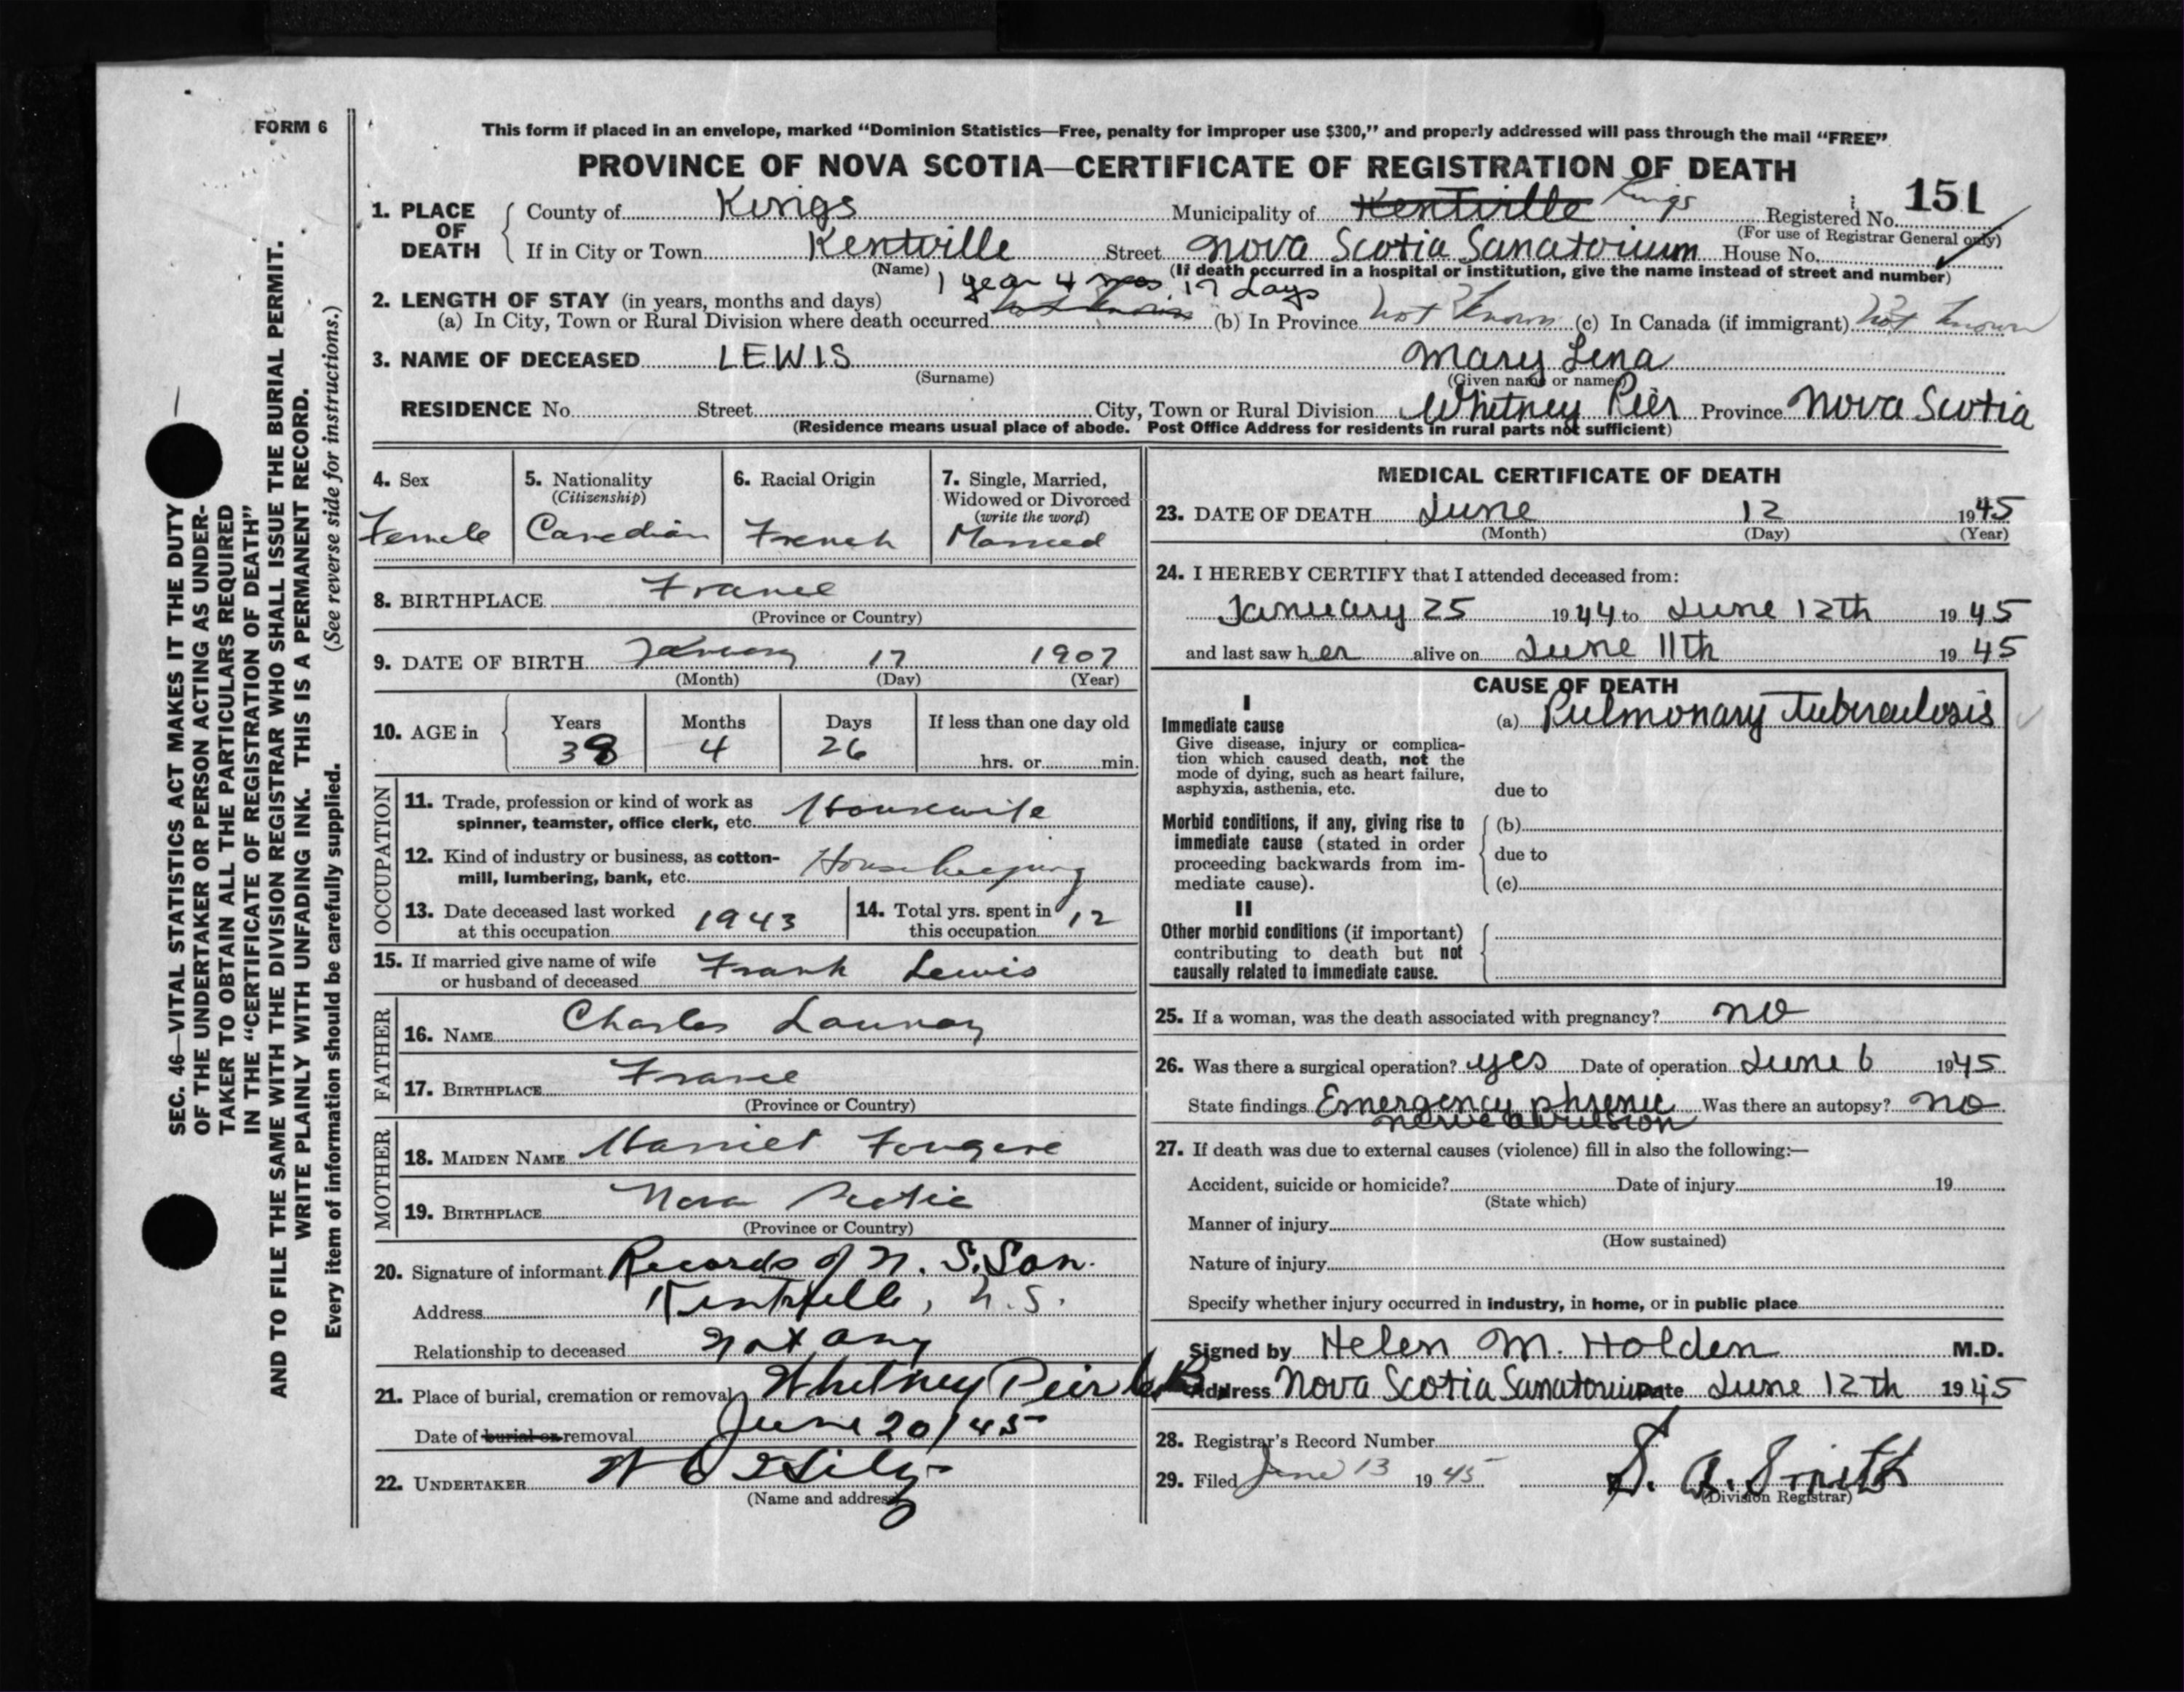 FORM 6
This form if placed in an envelope, marked “Dominion Statistics—Free, penalty for improper use $300,” and properly addressed will pass through the mail “FREE”
PROVINCE OF NOVA SCOTIA—CERTIFICATE OF REGISTRATION OF DEATH
1. PLACE OF DEATH County of Kings Municipality of Kentville Kings Registered No. 151
(For use of Registrar General only)
If in City or Town Kentville Street Nova Scotia Sanatorium House No.
(Name) (If death occurred in a hospital or institution, give the name instead of street and number)
2. LENGTH OF STAY (in years, months and days) 1 year 4 mos 17 days
(a) In City, Town or Rural Division where death occurred not known (b) In Province not known (c) In Canada (if immigrant) not known
3. NAME OF DECEASED LEWIS Mary Lena
(Surname) (Given name or names)
RESIDENCE No. Street City, Town or Rural Division Whitney Pier Province Nova Scotia
(Residence means usual place of abode. Post Office Address for residents in rural parts not sufficient)
4. Sex Female
5. Nationality (Citizenship) Canadian
6. Racial Origin French
7. Single, Married, Widowed or Divorced (write the word) Married
8. BIRTHPLACE France
(Province or Country)
9. DATE OF BIRTH January 17 1907
(Month) (Day) (Year)
10. AGE in Years Months Days If less than one day old
38 4 26 hrs. or min.
OCCUPATION
11. Trade, profession or kind of work as
spinner, teamster, office clerk, etc. Housewife
12. Kind of industry or business, as cotton-
mill, lumbering, bank, etc. Housekeeping
13. Date deceased last worked at this occupation 1943
14. Total yrs. spent in this occupation 12
15. If married give name of wife
or husband of deceased Frank Lewis
FATHER
16. NAME Charles Launay
17. BIRTHPLACE France
(Province or Country)
MOTHER
18. MAIDEN NAME Harriet Fougere
19. BIRTHPLACE Nova Scotia
(Province or Country)
20. Signature of informant Records of N. S. San.
Address Kentville, N.S.
Relationship to deceased not any
21. Place of burial, cremation or removal Whitney Pier
Date of burial or removal June 20/45
22. UNDERTAKER
(Name and address)
MEDICAL CERTIFICATE OF DEATH
23. DATE OF DEATH June 12 1945
(Month) (Day) (Year)
24. I HEREBY CERTIFY that I attended deceased from:
January 25 1944 to June 12th 1945
and last saw her alive on June 11th 1945
CAUSE OF DEATH
I
Immediate cause (a) Pulmonary Tuberculosis
Give disease, injury or complica-
tion which caused death, not the
mode of dying, such as heart failure,
asphyxia, asthenia, etc. due to
Morbid conditions, if any, giving rise to (b)
immediate cause (stated in order
proceeding backwards from im- due to
mediate cause). (c)
II
Other morbid conditions (if important)
contributing to death but not
causally related to immediate cause.
25. If a woman, was the death associated with pregnancy? no
26. Was there a surgical operation? yes Date of operation June 6 1945
State findings Emergency phrenic Was there an autopsy? no
nerve avulsion
27. If death was due to external causes (violence) fill in also the following:—
Accident, suicide or homicide? Date of injury 19
(State which)
Manner of injury
(How sustained)
Nature of injury
Specify whether injury occurred in industry, in home, or in public place
Signed by Helen M. Holden M.D.
Address Nova Scotia Sanatorium Date June 12th 1945
28. Registrar's Record Number
29. Filed June 13 1945 S. A. Smith
(Division Registrar)
SEC. 46—VITAL STATISTICS ACT MAKES IT THE DUTY
OF THE UNDERTAKER OR PERSON ACTING AS UNDER-
TAKER TO OBTAIN ALL THE PARTICULARS REQUIRED
IN THE “CERTIFICATE OF REGISTRATION OF DEATH”
AND TO FILE THE SAME WITH THE DIVISION REGISTRAR WHO SHALL ISSUE THE BURIAL PERMIT.
WRITE PLAINLY WITH UNFADING INK. THIS IS A PERMANENT RECORD.
Every item of information should be carefully supplied. (See reverse side for instructions.)